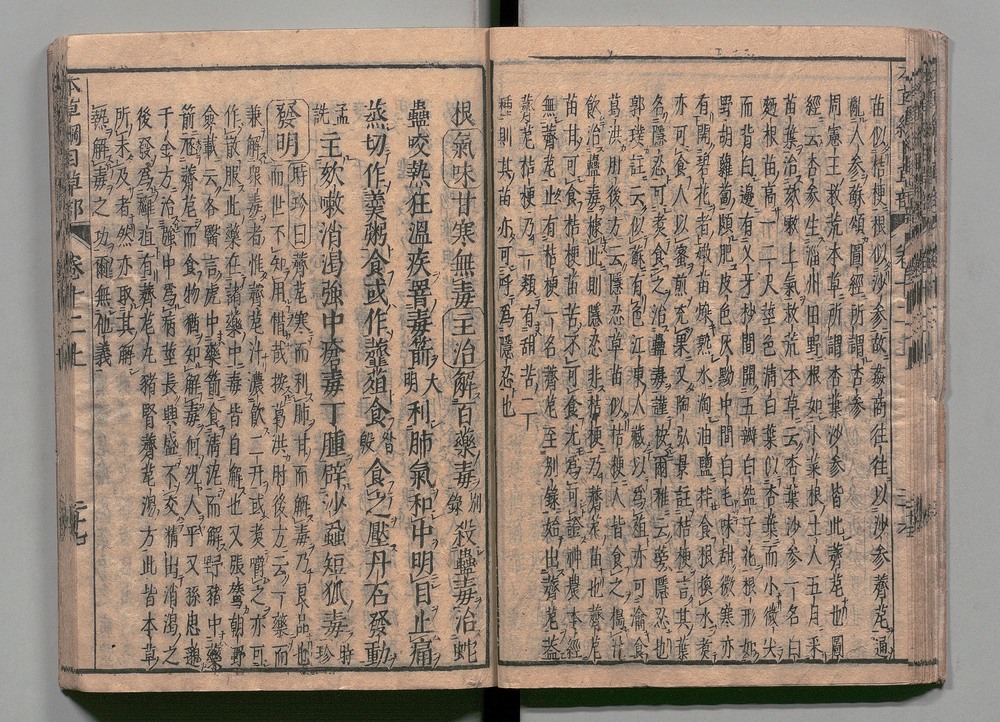 苗似桔梗根似沙参故姦商往往以沙参薺苨通
亂人参蘇頌圖經所謂杏参
周憲王救荒本草所謂杏葉沙参皆此薺苨也圖
經云杏参生淄州田野根如小菜根土人五月采
苗葉治欬嗽上氣救荒本草云杏葉沙参一名白
麪根苗高一二尺莖色清白葉似杏葉而小微尖
而背白邊有叉牙杪間開五瓣白盌子花根形如
野胡蘿蔔頗肥皮色灰黝中間白毛味甜微寒亦
有開碧花者嫩苗煠熟水淘油鹽拌食根換水煑
亦可食人以蜜煎充果又陶弘景註桔梗言其葉
名隱忍可煑食之治蠱毒謹按爾雅云蒡隱忍也
郭璞註云似蘇有毛江東人藏以爲葅亦可瀹食
葛洪肘後方云隱忍草苗似桔梗人皆食之搗汁
飲治蠱毒據此則隱忍非桔梗乃薺苨苗也薺苨
苗甘可食桔梗苗苦不可食尤爲可證神農本經
無薺苨止有桔梗一名薺苨至別錄始出薺苨蓋
薺苨桔梗乃一類有甜苦二
種則其苗亦可呼爲隱忍也
根氣味甘寒無毒主治解百藥毒別錄殺蠱毒治蛇
蟲咬熱狂溫疾署毒箭大明利肺氣和中明目止痛
蒸切作羹粥食或作虀葅食昝殷食之壓丹石發動
孟詵主欬嗽消渴強中瘡毒丁腫辟沙蝨短狐毒時珍
發明時珍曰薺苨寒而利肺甘而解毒乃良品也
而世不知用惜哉按葛洪肘後方云一藥而
兼解衆毒者惟薺苨汁濃飲二升或煑嚼之亦可
作散服此藥在諸藥中毒皆自解也又張鷟朝野
僉載云各醫言虎中藥箭食清泥而解野豬中藥
箭豗薺苨而食物猶知解毒何況人乎又孫思邈
千金方治強中爲病莖長興盛不交精出消渴之
後發爲癰疽有薺苨丸豬腎薺苨湯方此皆本草
所未及者然亦取其解
熱解毒之功爾無他義
本草綱目草部
卷十二上